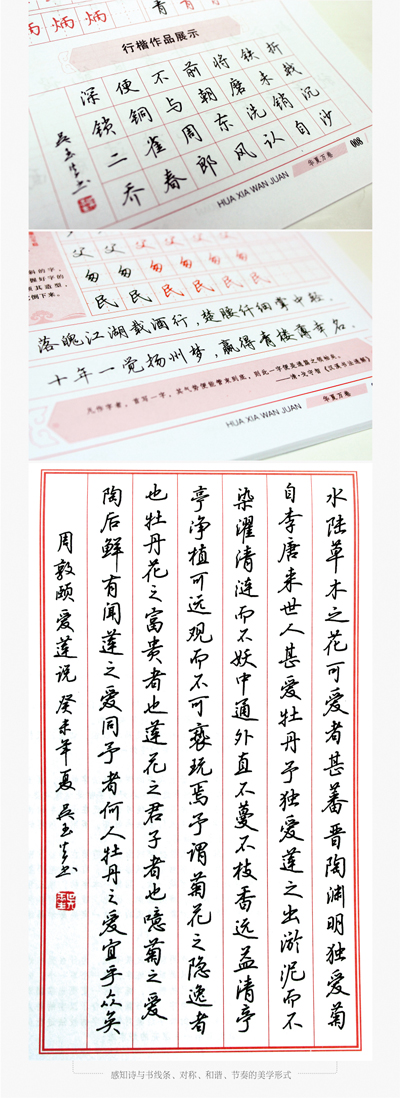 炳炳炳
青青
行楷作品展示
折戟沉沙
铁未销自
将磨洗认
前朝东风
不与周郎
便铜雀春
深锁二乔
吴玉生书
HUA XIA WAN JUAN
华夏万卷
008
父父父父父父
匆匆匆匆匆匆
民民民民民民
落魄江湖载酒行,楚腰纤细掌中轻。
十年一觉扬州梦,赢得青楼薄幸名。
凡作字者,首写一字,其气势便能管束到底,则此一字便是通篇之领袖矣。
——清·戈守智《汉溪书法通解》
HUA XIA WAN JUAN
华夏万卷
水陆草木之花可爱者甚蕃晋陶渊明独爱菊
自李唐来世人甚爱牡丹予独爱莲之出淤泥而不
染濯清涟而不妖中通外直不蔓不枝香远益清亭
亭净植可远观而不可亵玩焉予谓菊花之隐逸者
也牡丹花之富贵者也莲花之君子者也噫菊之爱
陶后鲜有闻莲之爱同予者何人牡丹之爱宜乎众矣
周敦颐爱莲说 癸未年夏 吴玉生书
感知诗与书线条、对称、和谐、节奏的美学形式